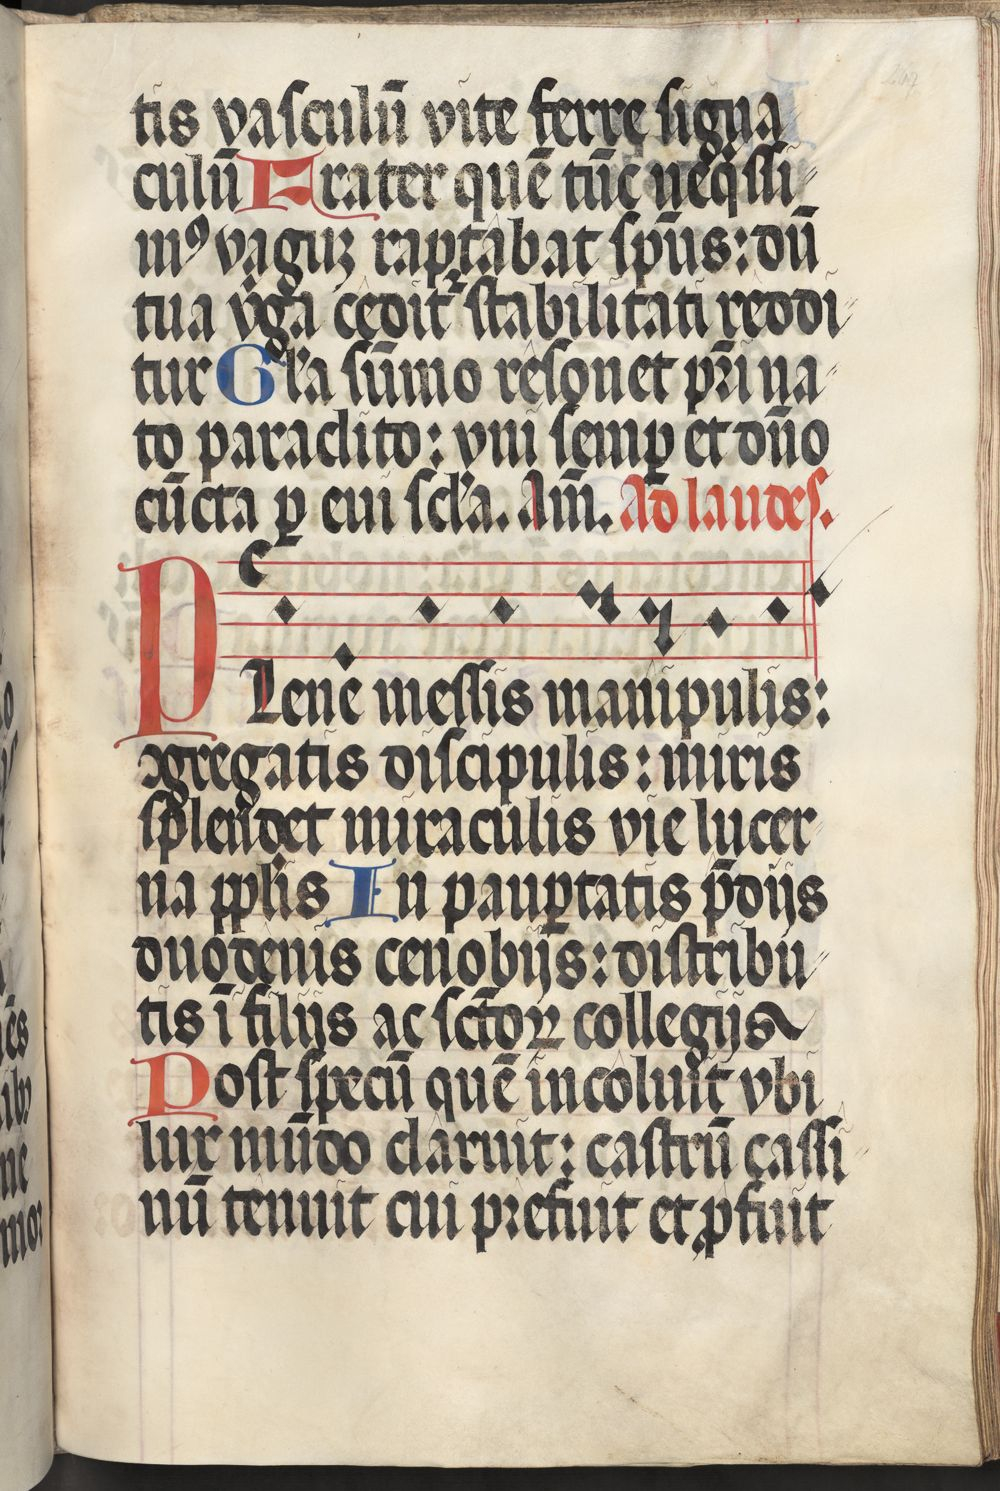 tis vasculū vite ferre signa
culū Frater quē tūc neq̇ssi
mꝰ vaguȝ raptabat sp̄us: dū
tua v̇ga cedit͛ stabilitati reddi
tur Gl̓a sūmo resonet pr̄i na
to paraclito: vni semꝑ et dn̄o
cūcta ꝑ eui scl̓a. Am̄. Ad laudes.
PLene messis manipulis:
ꝯgregatis discipulis: miris
splendet miraculis vie lucer
na ꝓpl̓is In pauꝑtatis p̄dijs
duodenis cenobijs: distribu
tis ī filijs ac sctōꝝ collegijs
Post specū quē incoluit vbi
lux mūdo claruit: castrū cassi
nū tenuit cui prefuit et ꝓfuit